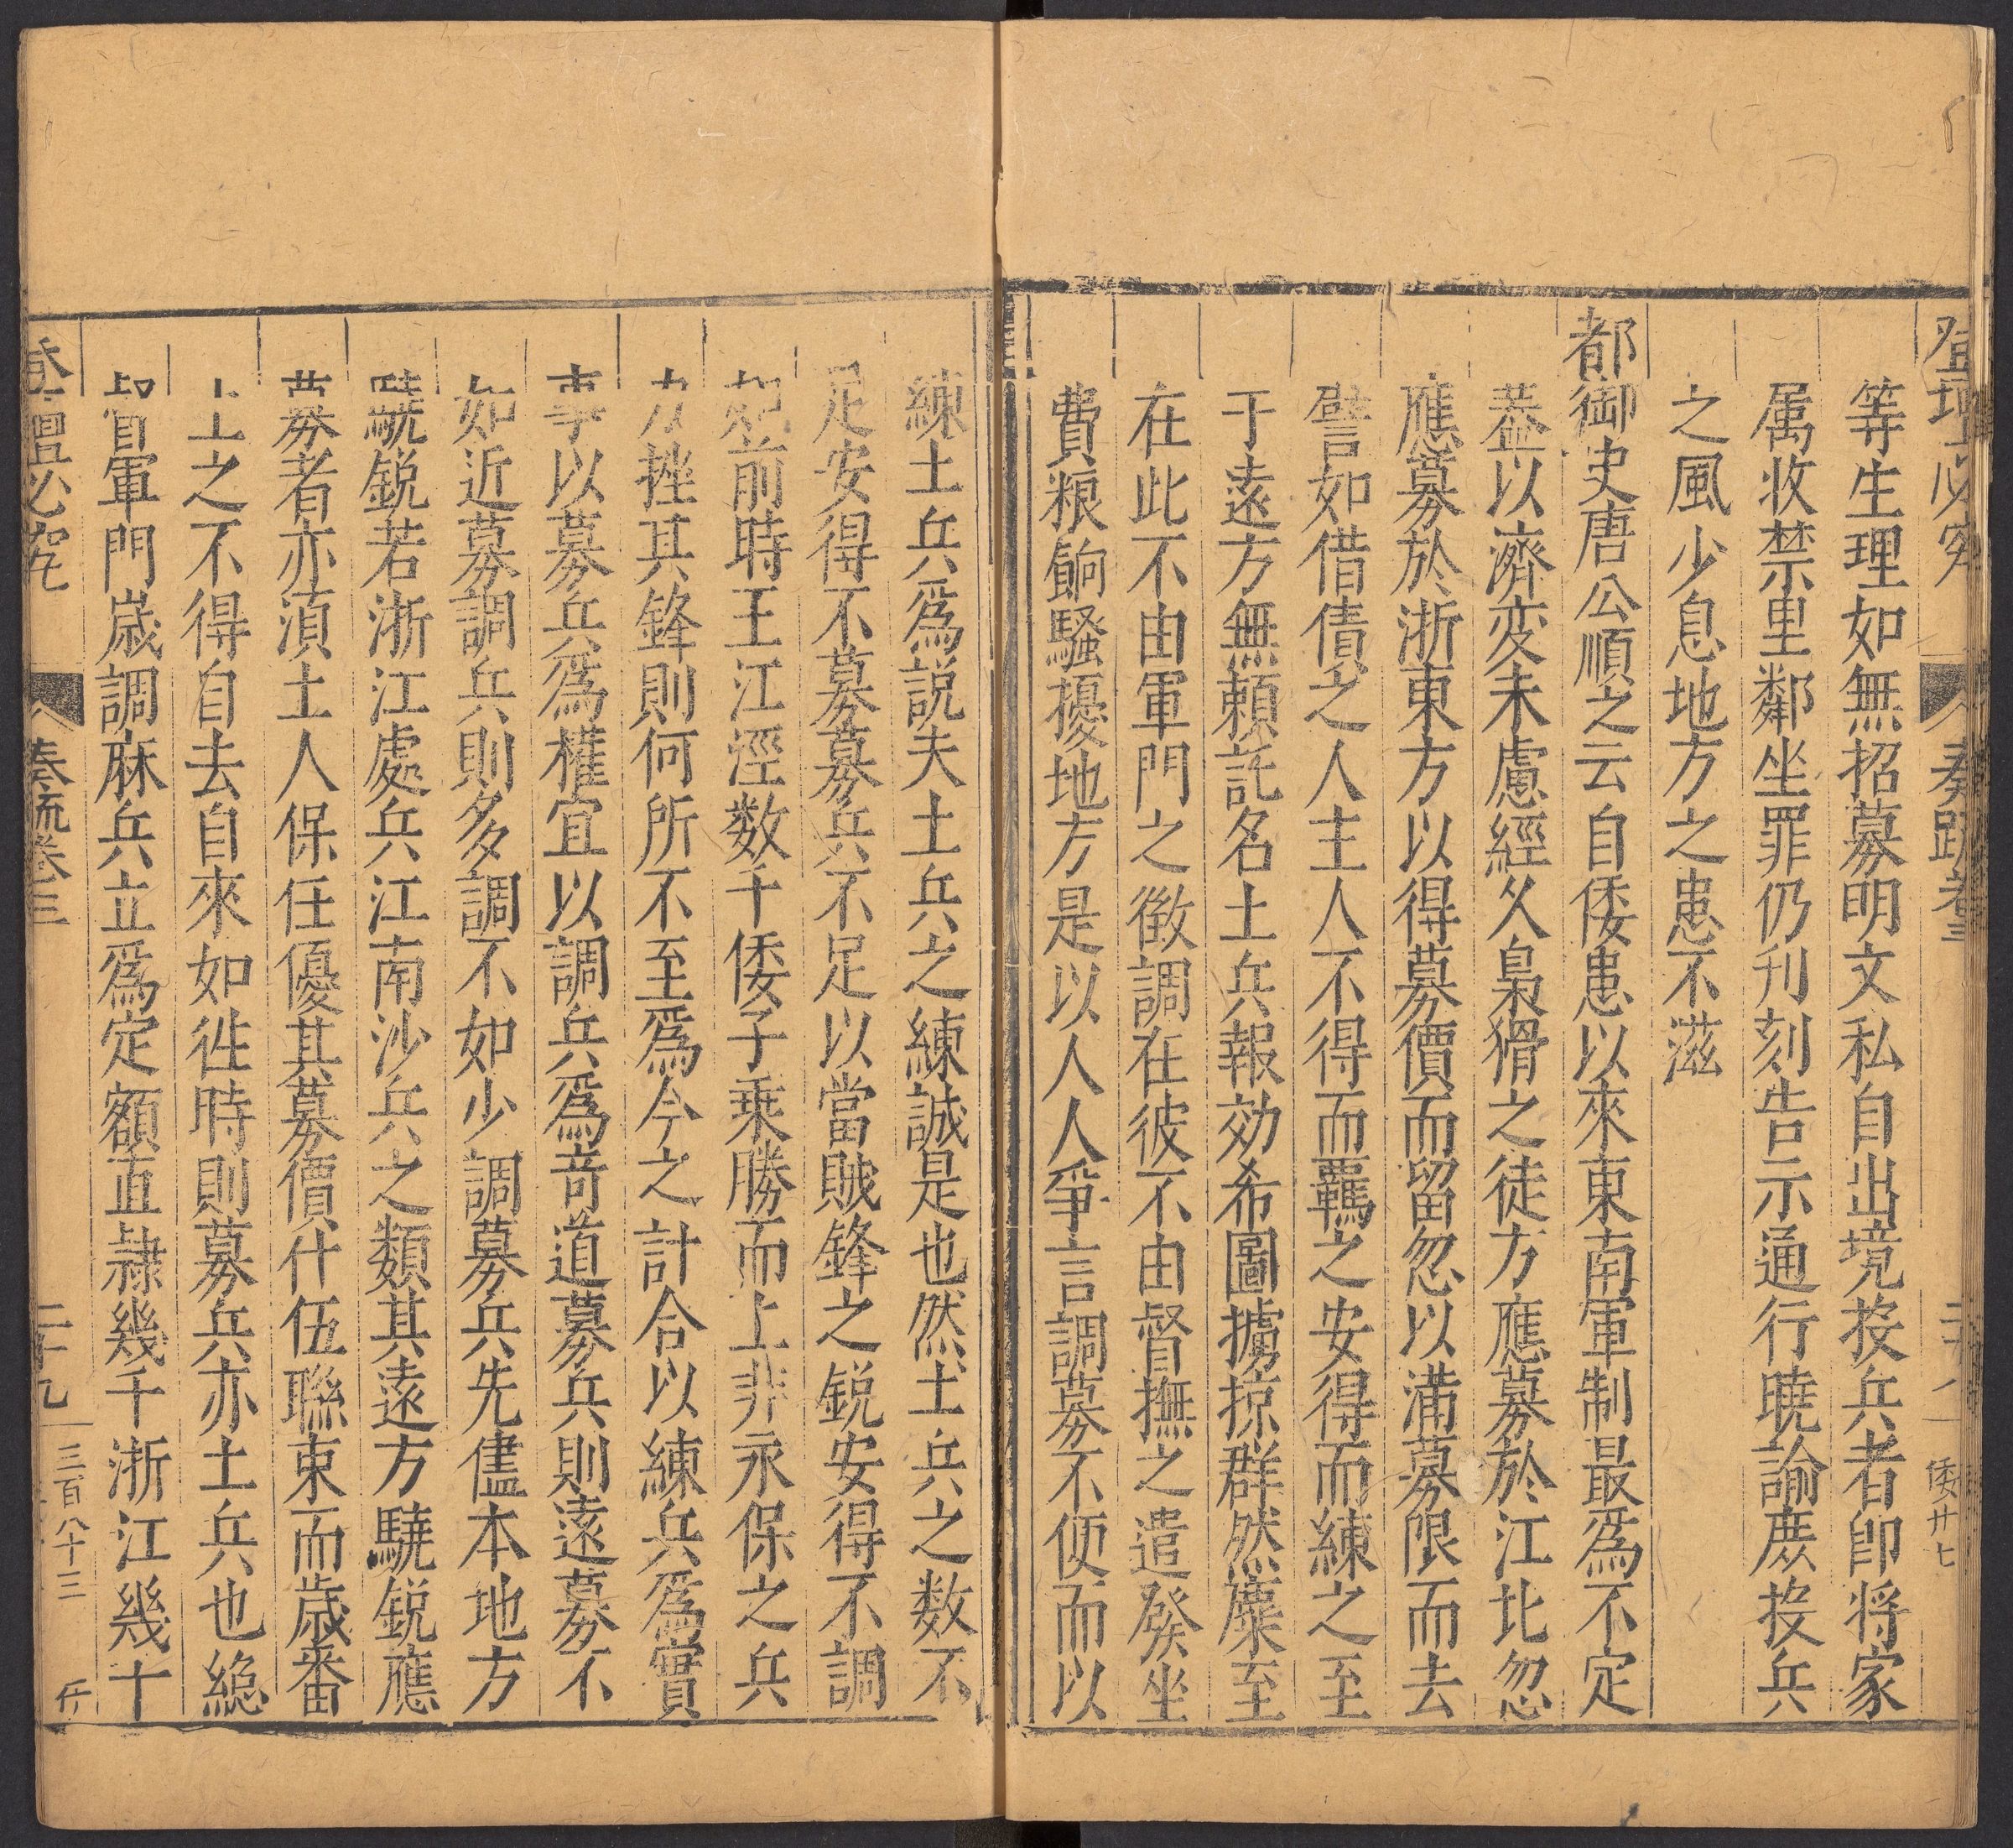 登壇必究 奏疏卷三 二十八 倭廿七
等生理如無招募明文私自出境投兵者即将家
属收禁里鄰坐罪仍刊刻告示通行曉諭庶投兵
之風少息地方之患不滋
都御史唐公順之云自倭患以來東南軍制最爲不定
葢以濟変未慮經久梟猾之徒方應募於江北忽
應募於浙東方以得募價而留忽以滿募限而去
譬如借債之人主人不得而羈之安得而練之至
于遠方無頼託名土兵報効希圖擄掠群然麋至
在此不由軍門之徵調在彼不由督撫之遣發坐
費粮餉騷擾地方是以人人爭言調募不便而以
練土兵爲説夫土兵之練誠是也然土兵之数不
足安得不募募兵不足以當賊鋒之鋭安得不調
如前時王江涇数千倭子乗勝而上非永保之兵
力挫其鋒則何所不至爲今之計合以練兵爲實
事以募兵爲權宜以調兵爲竒道募兵則遠募不
如近募調兵則多調不如少調募兵先儘本地方
驍鋭若浙江處兵江南沙兵之類其遠方驍鋭應
募者亦湏土人保任優其募價什伍聯束而歳番
上之不得自去自來如徃時則募兵亦土兵也總
督軍門歳調麻兵立爲定額直隷幾千浙江幾十
登壇必究 奏疏卷三 二十九 三百八十三